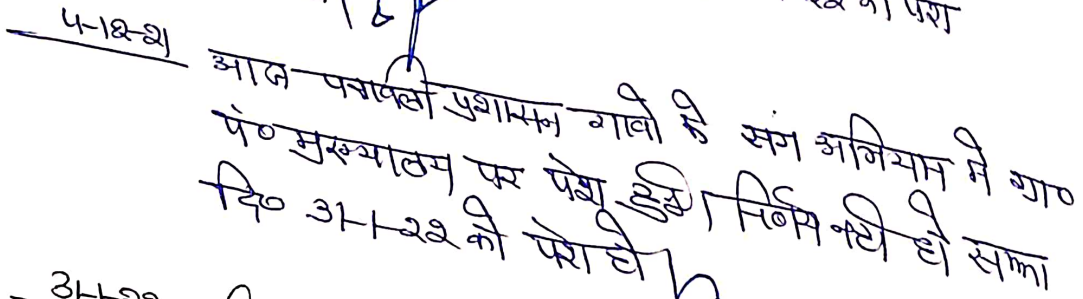 को पेश
4-12-21
आज पत्रावली प्रशासन गावो के संग अभियान मे ग्रा०
पं० मुख्यालय पर पेश हुई। निर्णय नही हो सका
दि० 31-1-22 को पेश हो
31-1-22